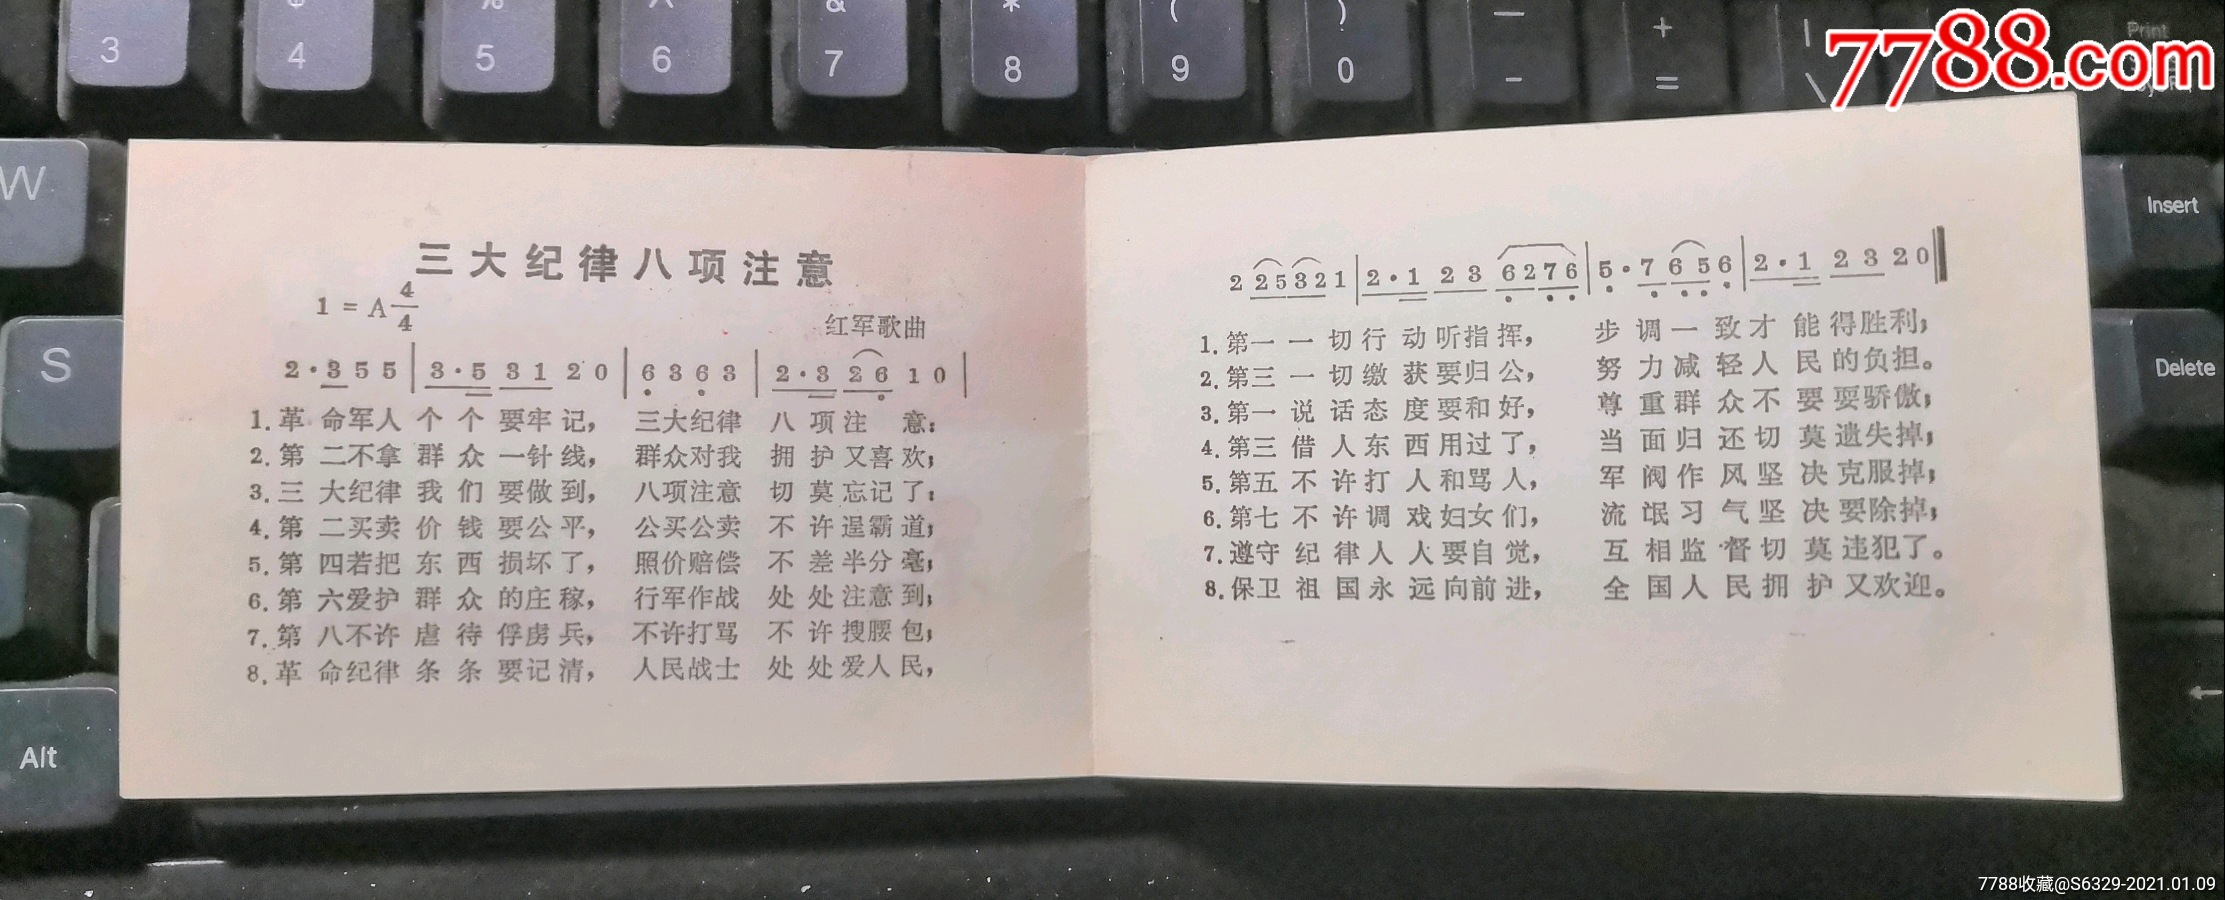 3 $ 4 % 5 ^ 6 & 7 * 8 ( 9 ) 0 — - + = | \ Print
7788.com
W
S
Alt
Insert
Delete
←
三大纪律八项注意
1 = A 4/4
红军歌曲
2·3 5 5 | 3·5 3 1 2 0 | 6 3 6 3 | 2·3 2 6 1 0 |
1.革命军人个个要牢记，三大纪律八项注意：
2.第二不拿群众一针线，群众对我拥护又喜欢；
3.三大纪律我们要做到，八项注意切莫忘记了：
4.第二买卖价钱要公平，公买公卖不许逞霸道；
5.第四若把东西损坏了，照价赔偿不差半分毫；
6.第六爱护群众的庄稼，行军作战处处注意到；
7.第八不许虐待俘虏兵，不许打骂不许搜腰包；
8.革命纪律条条要记清，人民战士处处爱人民，
2 2 5 3 2 1 | 2·1 2 3 6 2 7 6 | 5·7 6 5 6 | 2·1 2 3 2 0 ‖
1.第一一切行动听指挥，步调一致才能得胜利；
2.第三一切缴获要归公，努力减轻人民的负担。
3.第一说话态度要和好，尊重群众不要耍骄傲；
4.第三借人东西用过了，当面归还切莫遗失掉；
5.第五不许打人和骂人，军阀作风坚决克服掉；
6.第七不许调戏妇女们，流氓习气坚决要除掉；
7.遵守纪律人人要自觉，互相监督切莫违犯了。
8.保卫祖国永远向前进，全国人民拥护又欢迎。
7788收藏@S6329-2021.01.09